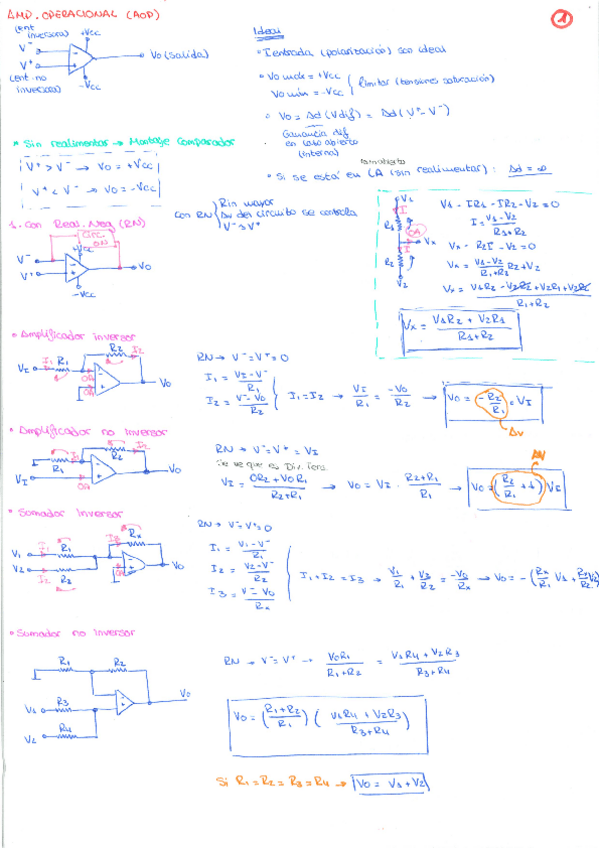 AMP. OPERACIONAL (AOP)
1
(ent inversora)
+Vcc
V⁻
V⁺
Vo (salida)
(ent. no inversora)
-Vcc
Ideal
• I entrada (polarización) son ideal
• Vo max = +Vcc
Vo min = -Vcc
limitar (tensiones saturación)
• Vo = Ad (Vdif) = Ad (V⁺ - V⁻)
Ganancia dif
en lazo abierto
(interna)
* Sin realimentar → Montaje Comparador
V⁺ > V⁻ → Vo = +Vcc
V⁺ < V⁻ → Vo = -Vcc
• Si se está en LA (sin realimentar): Ad = ∞
1. Con Real. Neg (RN)
CIRC.
+Vcc
V⁻
V⁺
Vo
-Vcc
Con RN
Rin mayor
Av del circuito se controla
V⁻ = V⁺
V1
I
R1
Vx
I
R2
V2
V1 - IR1 - IR2 - V2 = 0
I = V1 - V2 / R1 + R2
Vx - R2I - V2 = 0
Vx = V1 - V2 / R1 + R2 R2 + V2
Vx = V1R2 - V2R2 + V2R1 + V2R2 / R1 + R2
Vx = V1R2 + V2R1 / R1 + R2
• Amplificador inversor
VI
I1
R1
R2
I2
Vo
RN → V⁻ = V⁺ = 0
I1 = VI - V⁻ / R1
I2 = V⁻ - Vo / R2
I1 = I2 → VI / R1 = -Vo / R2 → Vo = -R2 / R1 = VI
Av
• Amplificador no inversor
R1
R2
VI
Vo
RN → V⁻ = V⁺ = VI
Se ve que es Div. Tens.
VI = 0R2 + VoR1 / R2 + R1 → Vo = VI · R2 + R1 / R1 → Vo = (R2 / R1 + 1) VI
Av
• Sumador inversor
V1
I1
R1
I3
Rx
V2
I2
R2
Vo
RN → V⁻ = V⁺ = 0
I1 = V1 - V⁻ / R1
I2 = V2 - V⁻ / R2
I3 = V⁻ - Vo / Rx
I1 + I2 = I3 → V1 / R1 + V2 / R2 = -Vo / Rx → Vo = -(Rx / R1 V1 + Rx / R2 V2)
• Sumador no inversor
R1
R2
V1
R3
V2
R4
Vo
RN → V⁻ = V⁺ → VoR1 / R1 + R2 = V1R4 + V2R3 / R3 + R4
Vo = (R1 + R2 / R1) (V1R4 + V2R3 / R3 + R4)
Si R1 = R2 = R3 = R4 → Vo = V1 + V2